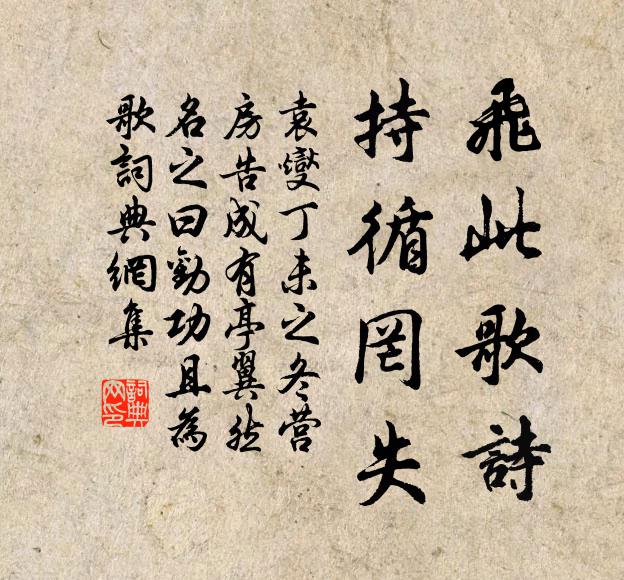 飛此歌詩
持循罔失
袁燮丁未之冬營
房告成有亭翼然
名之曰勸功且為
歌詞典網集
詞典
网印